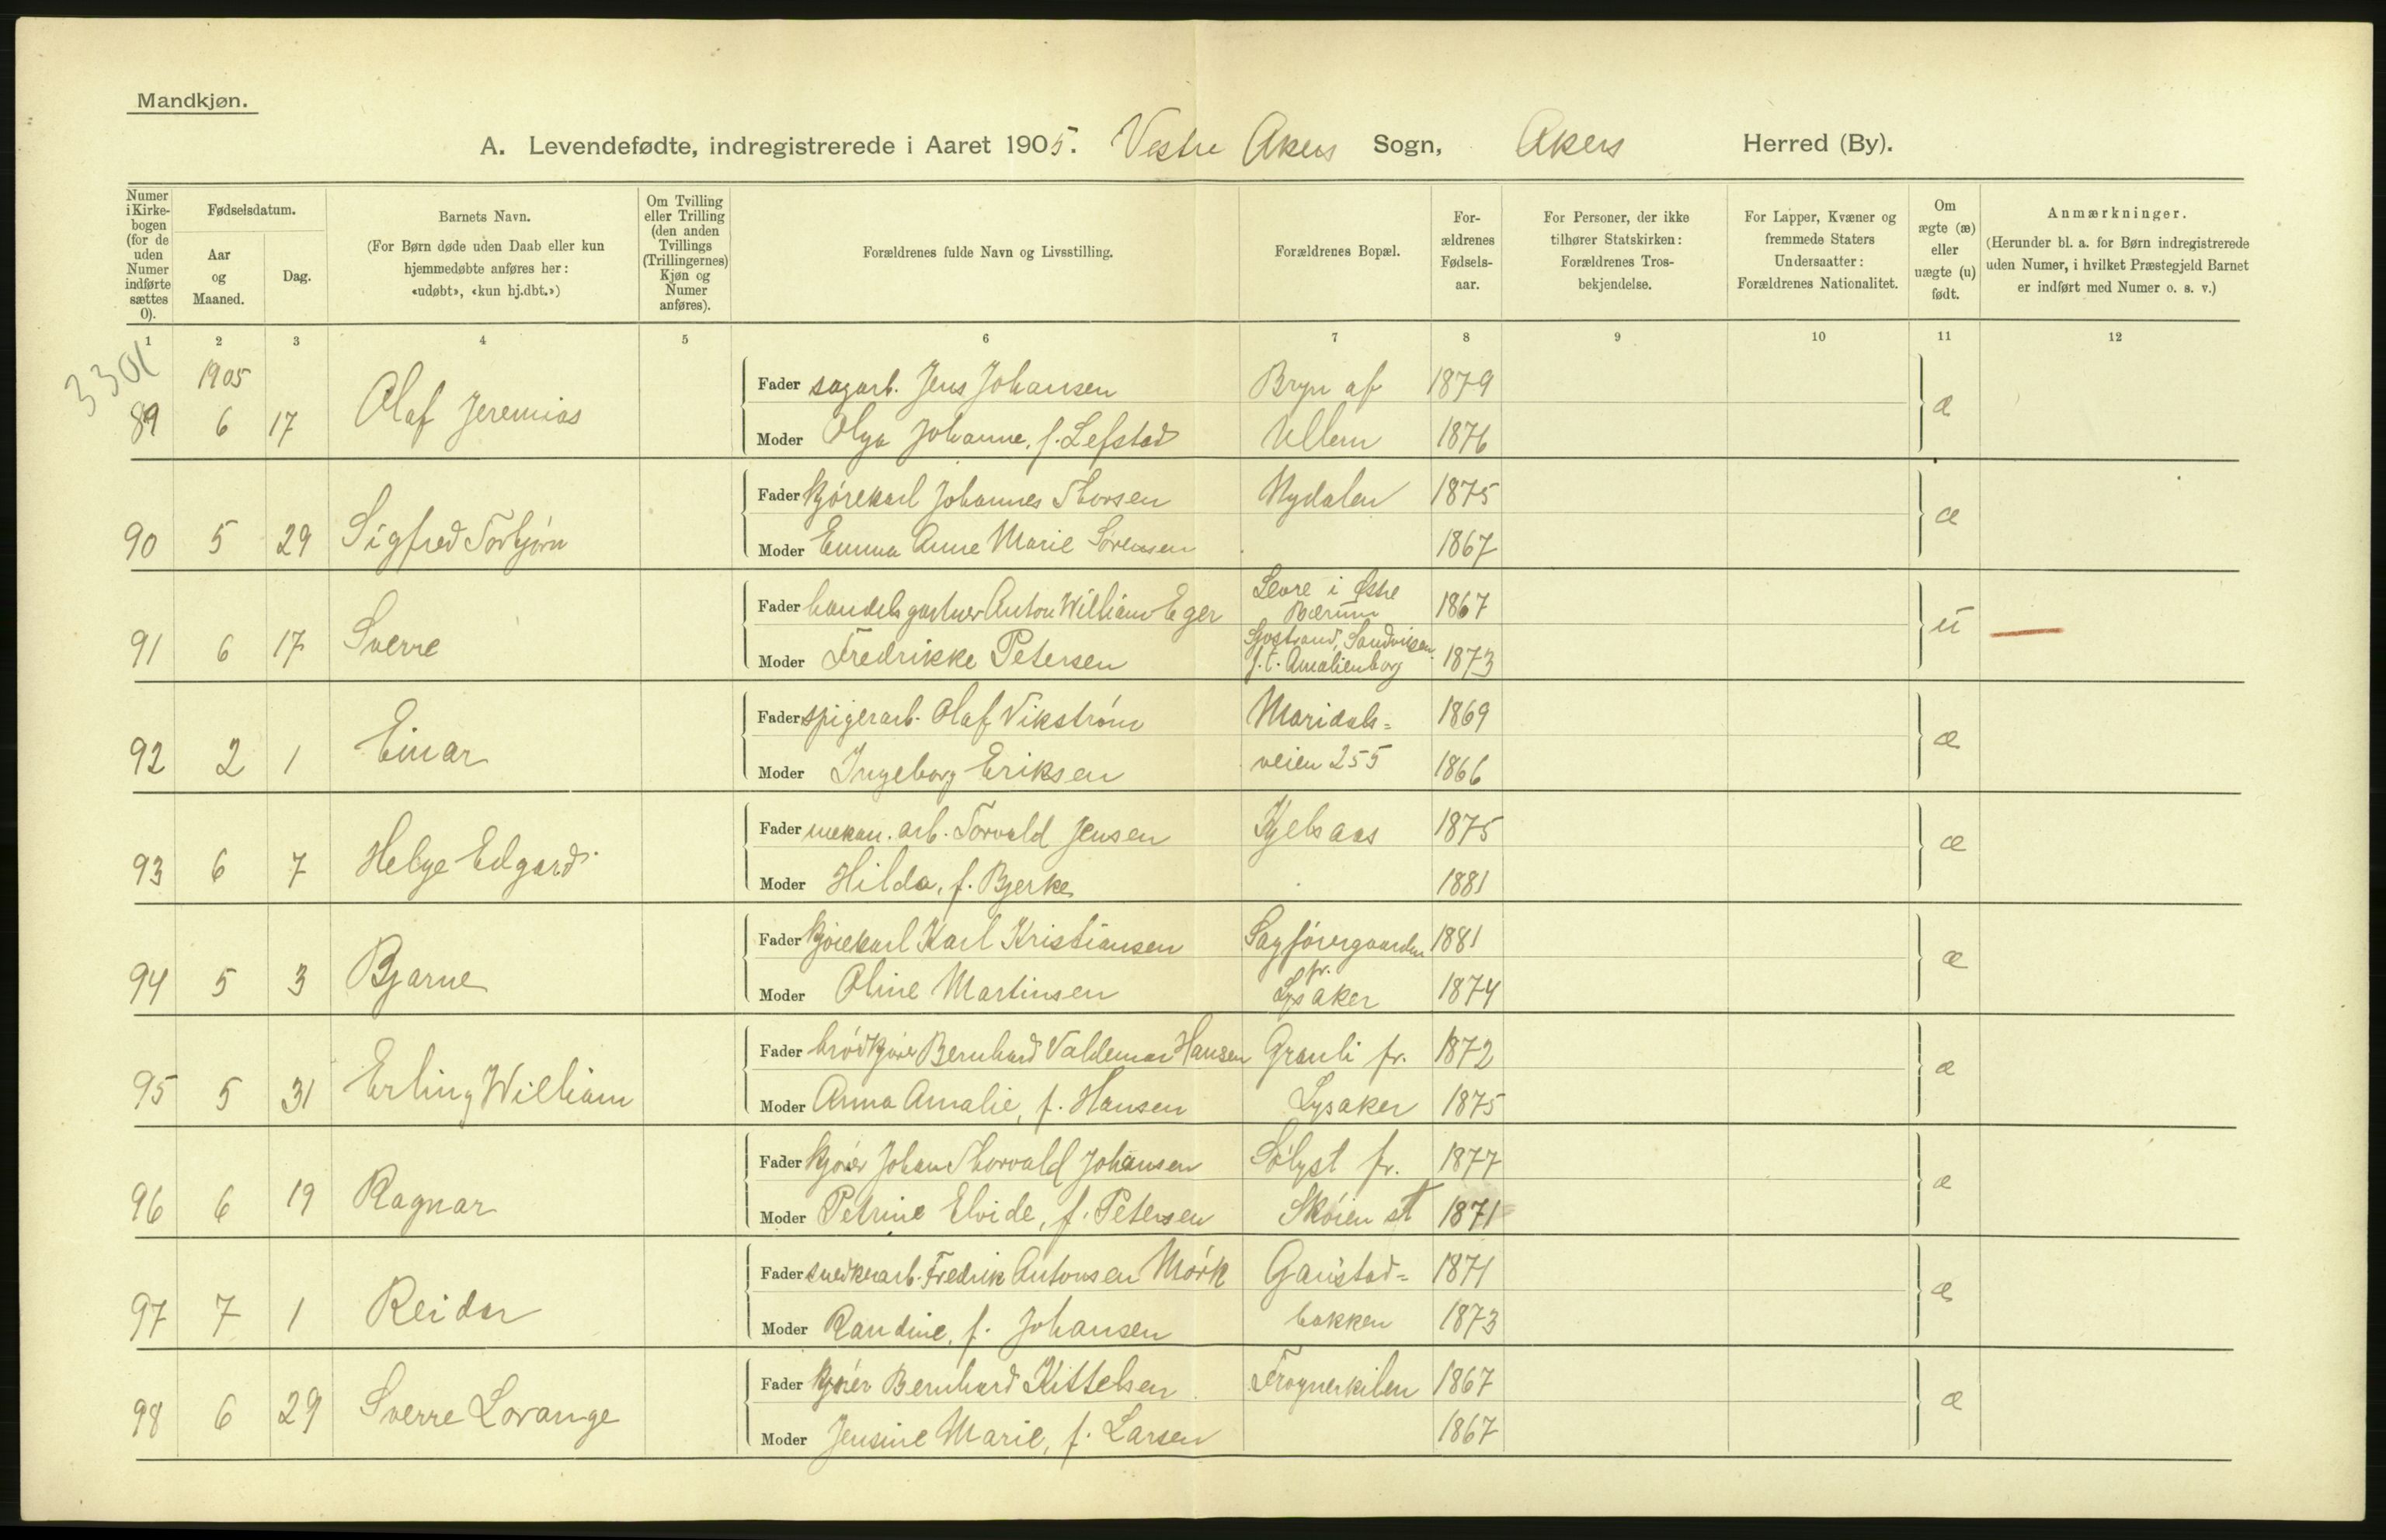 Mandkjøn.
A. Levendefødte, indregistrerede i Aaret 1905. Vestre Akers Sogn, Akers Herred (By).
Numer i Kirke-bogen (for de uden Numer indførte sættes 0).
Fødselsdatum.
Aar og Maaned.
Dag.
Barnets Navn.
(For Børn døde uden Daab eller kun hjemmedøbte anføres her: «udøbt», «kun hj.dbt.»)
Om Tvilling eller Trilling (den anden Tvillings (Trillingernes) Kjøn og Numer anføres).
Forældrenes fulde Navn og Livsstilling.
Forældrenes Bopæl.
For-ældrenes Fødsels-aar.
For Personer, der ikke tilhører Statskirken: Forældrenes Tros-bekjendelse.
For Lapper, Kvæner og fremmede Staters Undersaatter: Forældrenes Nationalitet.
Om ægte (æ) eller uægte (u) født.
Anmærkninger.
(Herunder bl. a. for Børn indregistrerede uden Numer, i hvilket Præstegjeld Barnet er indført med Numer o. s. v.)
1 2 3 4 5 6 7 8 9 10 11 12
3301
1905
89 6 17 Olaf Jeremias
Fader sagarb. Jens Johansen Bryn af 1879
Moder Olga Johanne, f. Lefstad Ullern 1876 æ
90 5 29 Sigfred Torbjörn
Fader kjörekarl Johannes Thorsen Nydalen 1875
Moder Emma Anne Marie Sörensen 1867 æ
91 6 17 Sverre
Fader handelsgartner Anton William Eger Levre i Østre Bærum 1867
Moder Fredrikke Petersen Sjöstrand, Sandviken f. t. Amalienborg 1873 u
92 2 1 Einar
Fader spigerarb. Olaf Vikström Maridals= 1869
Moder Ingeborg Eriksen veien 255 1866 æ
93 6 7 Helge Edgard
Fader mekan. arb. Torvald Jensen Kjelsaas 1875
Moder Hilda, f. Bjerke 1881 æ
94 5 3 Bjarne
Fader kjörekarl Karl Kristiansen Sagförergaarden 1881
Moder Oline Martinsen pr. Lysaker 1874 æ
95 5 31 Erling William
Fader brödkjörer Bernhard Valdemar Hansen Granli pr. 1872
Moder Anna Amalie, f. Hansen Lysaker 1875 æ
96 6 19 Ragnar
Fader kjörer Johan Thorvald Johansen Sölyst pr. 1877
Moder Petrine Elvide, f. Petersen Sköien st 1871 æ
97 7 1 Reidar
Fader snedkerarb. Fredrik Antonsen Mörk Gaustad= 1871
Moder Randine, f. Johansen bakken 1873 æ
98 6 29 Sverre Lorange
Fader kjörer Bernhard Kittelsen Frognerkilen 1867
Moder Jensine Marie, f. Larsen 1867 æ